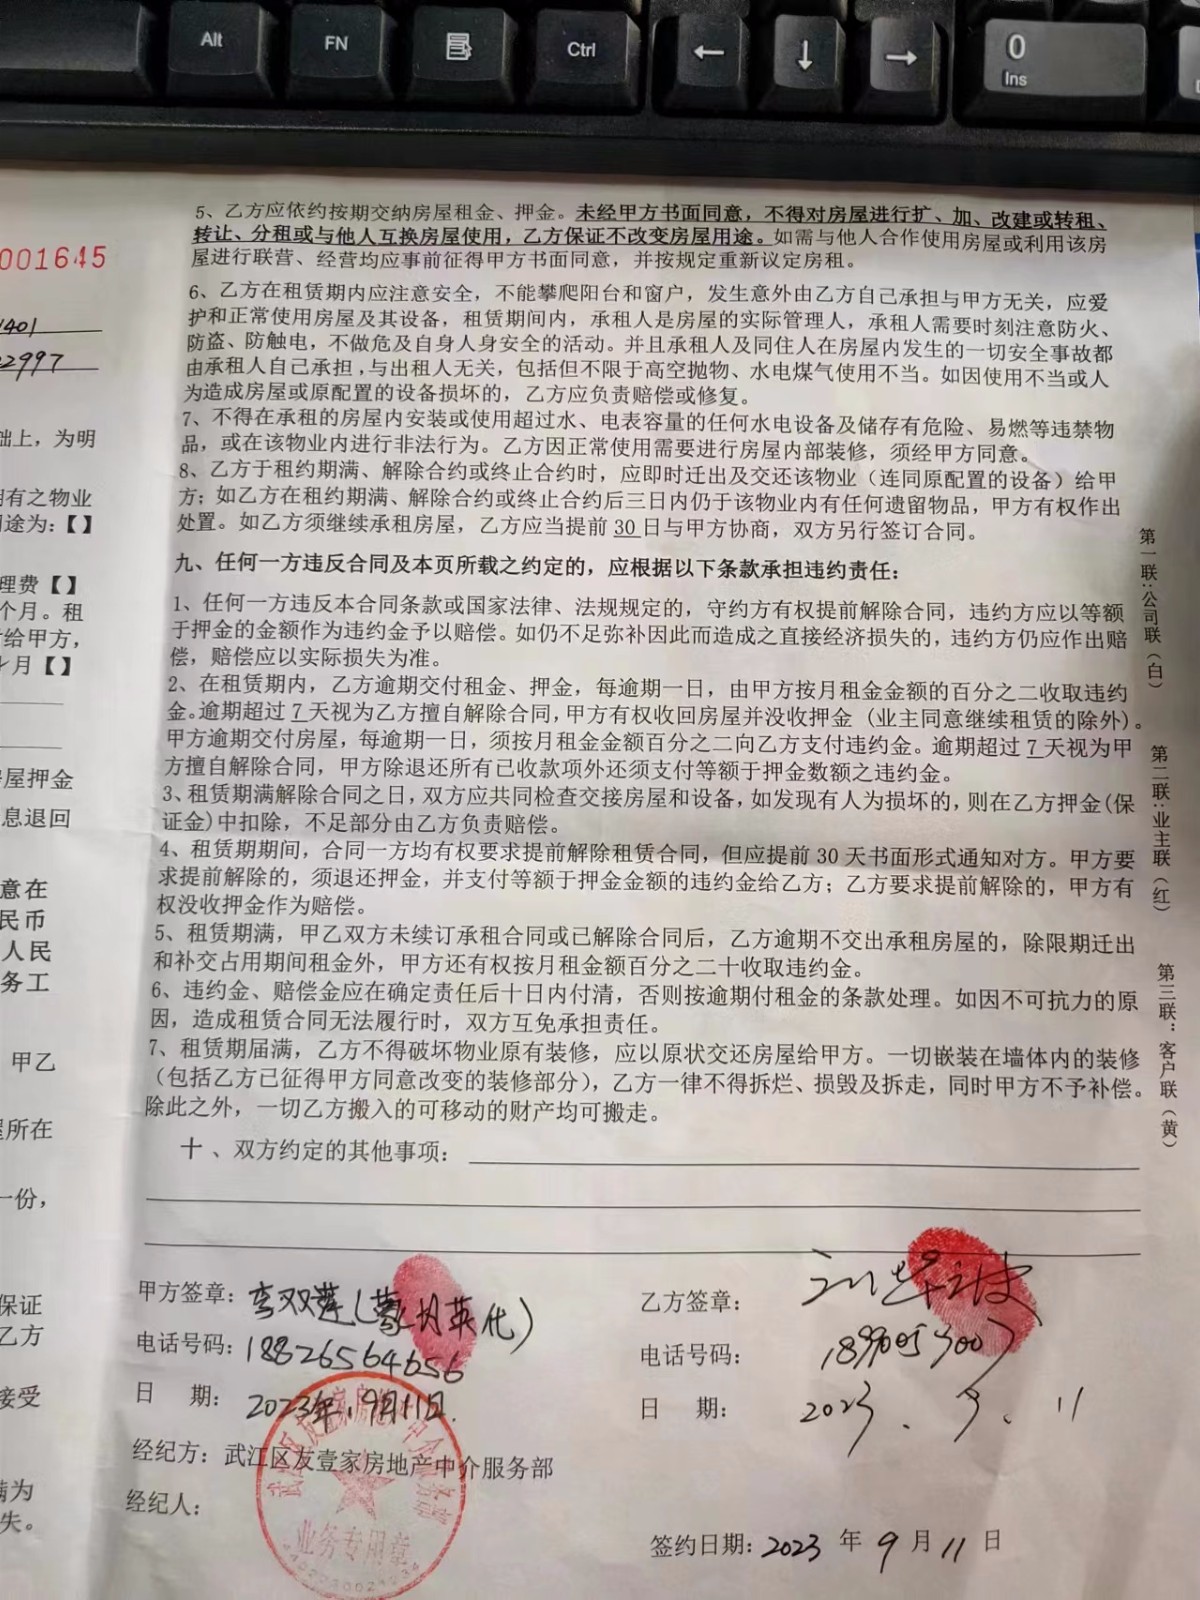 Alt
FN
Ctrl
0
Ins
001645
1401
22997
础上，为明
拥有之物业
用途为：【】
理费【】
个月。租
付给甲方，
月【】
屋押金
息退回
意在
民币
人民
务工
甲乙
屋所在
一份，
保证
乙方
接受
满为
失。
5、乙方应依约按期交纳房屋租金、押金。未经甲方书面同意，不得对房屋进行扩、加、改建或转租、
转让、分租或与他人互换房屋使用，乙方保证不改变房屋用途。如需与他人合作使用房屋或利用该房
屋进行联营、经营均应事前征得甲方书面同意，并按规定重新议定房租。
6、乙方在租赁期内应注意安全，不能攀爬阳台和窗户，发生意外由乙方自己承担与甲方无关，应爱
护和正常使用房屋及其设备，租赁期间内，承租人是房屋的实际管理人，承租人需要时刻注意防火、
防盗、防触电，不做危及自身人身安全的活动。并且承租人及同住人在房屋内发生的一切安全事故都
由承租人自己承担，与出租人无关，包括但不限于高空抛物、水电煤气使用不当。如因使用不当或人
为造成房屋或原配置的设备损坏的，乙方应负责赔偿或修复。
7、不得在承租的房屋内安装或使用超过水、电表容量的任何水电设备及储存有危险、易燃等违禁物
品，或在该物业内进行非法行为。乙方因正常使用需要进行房屋内部装修，须经甲方同意。
8、乙方于租约期满、解除合约或终止合约时，应即时迁出及交还该物业（连同原配置的设备）给甲
方；如乙方在租约期满、解除合约或终止合约后三日内仍于该物业内有任何遗留物品，甲方有权作出
处置。如乙方须继续承租房屋，乙方应当提前30日与甲方协商，双方另行签订合同。
九、任何一方违反合同及本页所载之约定的，应根据以下条款承担违约责任：
1、任何一方违反本合同条款或国家法律、法规规定的，守约方有权提前解除合同，违约方应以等额
于押金的金额作为违约金予以赔偿。如仍不足弥补因此而造成之直接经济损失的，违约方仍应作出赔
偿，赔偿应以实际损失为准。
2、在租赁期内，乙方逾期交付租金、押金，每逾期一日，由甲方按月租金金额的百分之二收取违约
金。逾期超过7天视为乙方擅自解除合同，甲方有权收回房屋并没收押金（业主同意继续租赁的除外）。
甲方逾期交付房屋，每逾期一日，须按月租金金额百分之二向乙方支付违约金。逾期超过7天视为甲
方擅自解除合同，甲方除退还所有已收款项外还须支付等额于押金数额之违约金。
3、租赁期满解除合同之日，双方应共同检查交接房屋和设备，如发现有人为损坏的，则在乙方押金(保
证金)中扣除，不足部分由乙方负责赔偿。
4、租赁期期间，合同一方均有权要求提前解除租赁合同，但应提前30天书面形式通知对方。甲方要
求提前解除的，须退还押金，并支付等额于押金金额的违约金给乙方；乙方要求提前解除的，甲方有
权没收押金作为赔偿。
5、租赁期满，甲乙双方未续订承租合同或已解除合同后，乙方逾期不交出承租房屋的，除限期迁出
和补交占用期间租金外，甲方还有权按月租金额百分之二十收取违约金。
6、违约金、赔偿金应在确定责任后十日内付清，否则按逾期付租金的条款处理。如因不可抗力的原
因，造成租赁合同无法履行时，双方互免承担责任。
7、租赁期届满，乙方不得破坏物业原有装修，应以原状交还房屋给甲方。一切嵌装在墙体内的装修
（包括乙方已征得甲方同意改变的装修部分），乙方一律不得拆烂、损毁及拆走，同时甲方不予补偿。
除此之外，一切乙方搬入的可移动的财产均可搬走。
十、双方约定的其他事项：
甲方签章：李双莲（蒙月英代）
电话号码：18826564656
日 期：2023年.9月11日.
经纪方：武江区友壹家房地产中介服务部
经纪人：
乙方签章：
电话号码：
日 期：2023.9.11
签约日期：2023年9月11日
武江区友壹家房地产中介服务部
业务专用章
第一联：公司联（白）
第二联：业主联（红）
第三联：客户联（黄）